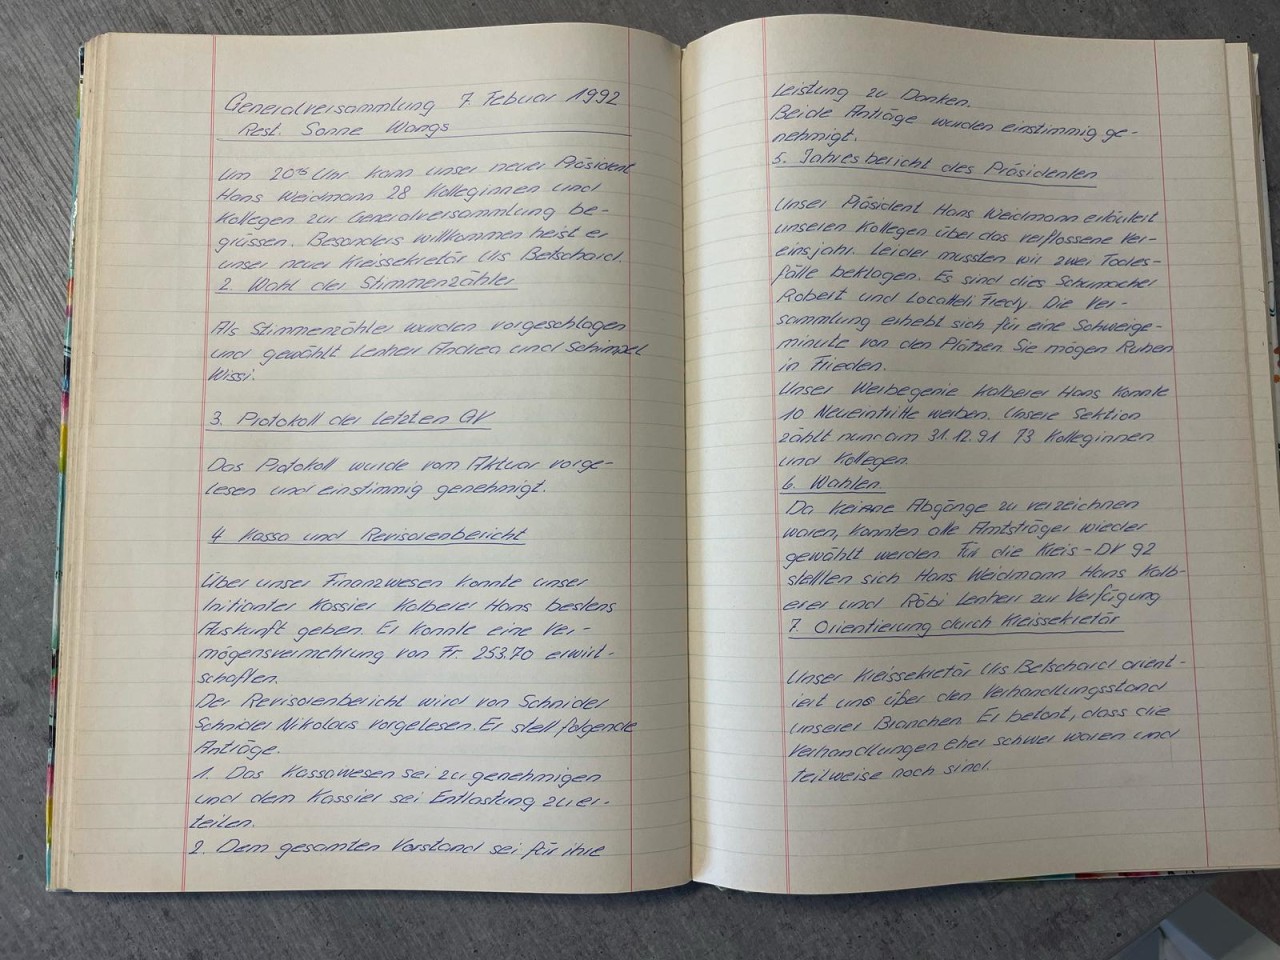 Generalversammlung 7 Febuar 1992
Rest. Sonne Wangs
Um 20⁰⁵ Uhr kann unser neuer Präsident
Hans Weidmann 28 Kolleginnen und
Kollegen zur Generalversammlung be-
grüssen. Besonders willkommen heist er
unser neuer Kreissekretär Urs Betschard.
2. Wahl der Stimmenzähler
Als Stimmenzähler wurden vorgeschlagen
und gewählt Lenherr Andrea und Schimpel
Wissi.
3. Protokoll der letzten GV
Das Protokoll wurde vom Aktuar vorge-
lesen und einstimmig genehmigt.
4 Kassa und Revisorenbericht
Über unser Finanzwesen konnte unser
Initianter Kassier Kalberer Hans bestens
Auskunft geben. Er konnte eine Ver-
mögensvermehrung von Fr. 253.70 erwirt-
schaften.
Der Revisorenbericht wird von Schnider
Schnider Nikolaus vorgelesen. Er stell folgende
Anträge.
1. Das Kassawesen sei zu genehmigen
und dem Kassier sei Entlastung zu er-
teilen.
2. Dem gesamten Vorstand sei für ihre
Leistung zu Danken.
Beide Anträge wurden einstimmig ge-
nehmigt.
5. Jahresbericht des Präsidenten
Unser Präsident Hans Weidmann erläutert
unseren Kollegen über das verflossene Ver-
einsjahr. Leider mussten wir zwei Todes-
fälle beklagen. Es sind dies Schumacher
Robert und Locatteli Fredy. Die Ver-
sammlung erhebt sich für eine Schweige-
minute von den Plätzen. Sie mögen Ruhen
in Frieden.
Unser Werbegenie Kalberer Hans konnte
10 Neueintritte werben. Unsere Sektion
zählt nun am 31.12.91 73 Kolleginnen
und Kollegen.
6. Wahlen.
Da keine Abgänge zu verzeichnen
waren, konnten alle Amtsträger wieder
gewählt werden. Für die Kreis-DV 92
stellten sich Hans Weidmann Hans Kalb-
erer und Röbi Lenherr zur Verfügung
7. Orientierung durch Kreissekretär
Unser Kreissekretär Urs Betschard orient-
iert uns über den Verhandlungsstand
unserer Branchen. Er betont, dass die
Verhandlungen eher schwer waren und
teilweise noch sind.